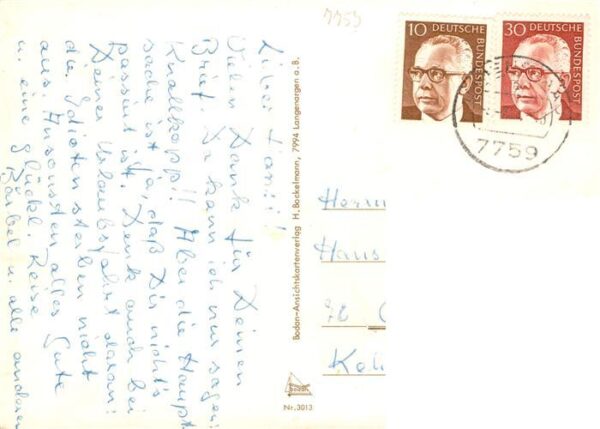 7759
Lieber Hansi!
Vielen Dank für Deinen
Brief. Da kann ich nur sagen:
Knallkopp!! Aber die Haupt
sache ist ja, daß Dir nichts
passiert ist. Denk auch bei
Deiner Urlaubsfahrt daran:
die Idioten sterben nicht
aus. Ansonsten alles Gute
u. eine glückl. Reise
Bärbel u. alle anderen
Bodan-Ansichtskartenverlag H. Bockelmann, 7994 Langenargen a. B.
bodan
Nr. 3013
10 DEUTSCHE BUNDESPOST
30 DEUTSCHE BUNDESPOST
7759
Herrn
Haus